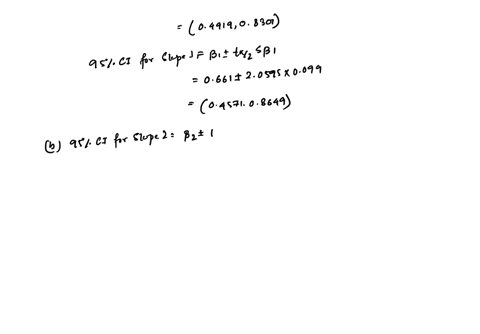 = (0.4919, 0.8301)
95% CI for Slope 1 = β1 ± tα/2 Sβ1
= 0.661 ± 2.0595 × 0.099
= (0.4571, 0.8649)
(b) 95% CI for Slope 2 = β2 ± 1